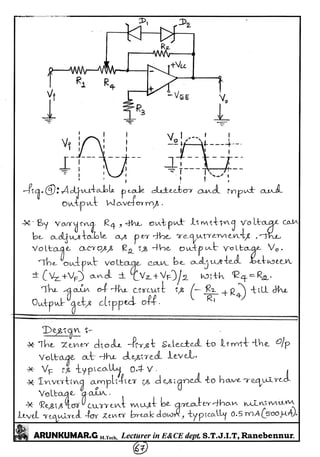 D1 D2
R2
+Vcc
R1 R4
-VEE
Vi
R3
Vo
Vi Vo
fig. ⑨: Adjustable peak detector and input and
output Waveforms.
* By varying R4, the output limiting voltage can
be adjustable as per the requirements. The
voltage across R2 is the output voltage Vo.
The output voltage can be adjusted between
± (Vz+VF) and ± (Vz+VF)/2 with R4=R2.
The gain of the circuit is (- R2/R1 + R4) till the
Output gets clipped off.
Design :-
* The zener diode first selected to limit the o/p
Voltage at the desired level.
* VF is typically 0.7 V.
* Inverting amplifier is designed to have required
Voltage gain.
* Resistor current must be greater than minimum
level required for zener break down, typically 0.5 mA (500 μA).
ARUNKUMAR.G M.Tech, Lecturer in E&CE dept. S.T.J.I.T, Ranebennur.
67